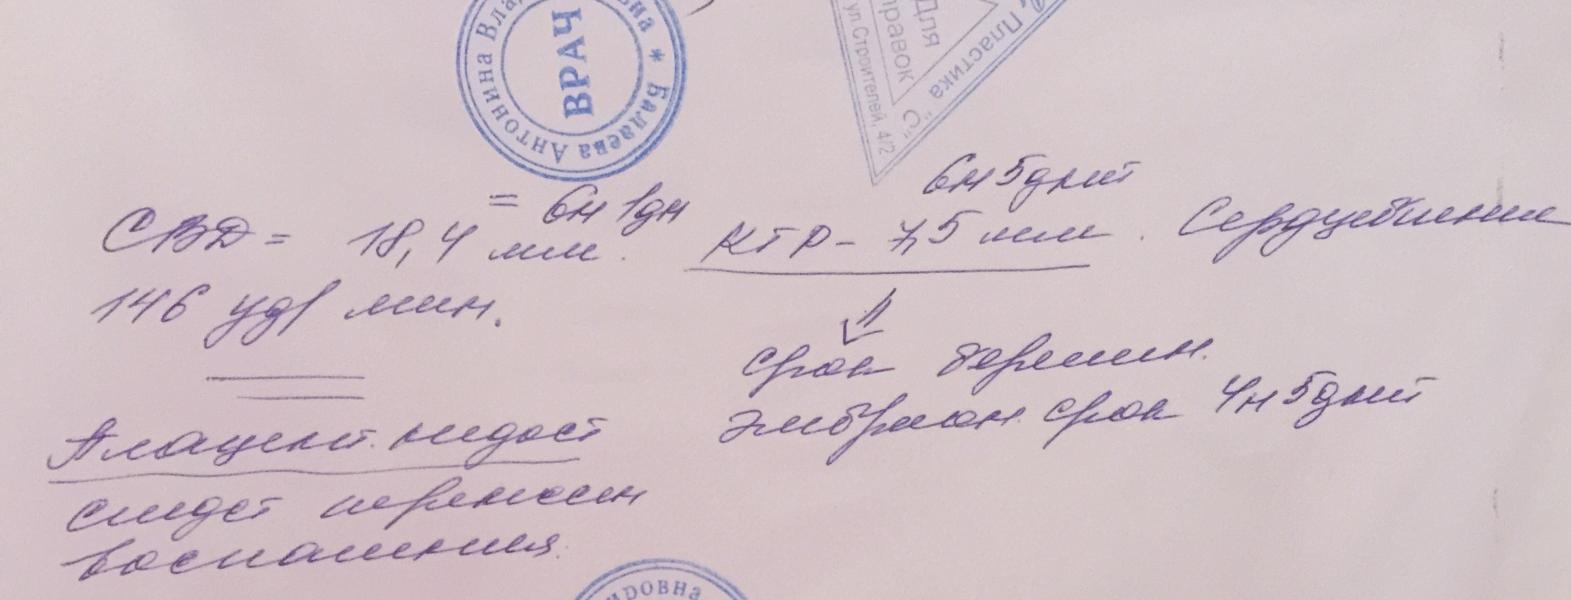 Балаева Антонина Влад
вна *
ВРАЧ
Для
правок
ул.Строителей, 4/2
Пластика "С"
= 6н 1дн
6н 5дней
СВД = 18,4 мм. КТР - 7,5 мм. Сердцебиение
146 уд/мин.
срок беремен.
эмбрион. срок 4н 5дней
Плацент. недост
следст перенесен
воспаления.
ировна